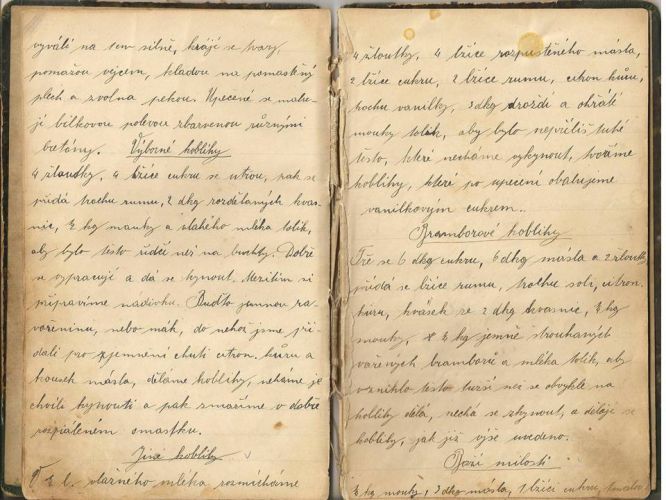 vyválí na 1cm silně, krájí se tvary,
pomažou vejcem, kladou na pomaštěný
plech a zvolna pekou. Upečené se malu-
jí bílkovou polevou zbarvenou různými
barvami. Výborné koblihy
4 žloutky, 4 lžíce cukru se utrou, pak se
přidá trochu rumu, 2 dkg rozdělaných kvas-
nic, ½ kg mouky a vlahého mléka tolik,
aby bylo těsto řidší než na buchty. Dobře
se vypracuje a dá se kynout. Mezitím si
připravíme nádivku. Buďto jemnou za-
vařeninu, nebo mák, do něhož jsme při-
dali pro zjemnění chuti citron. kůru a
kousek másla, děláme koblihy, necháme je
chvíli kynouti a pak smažíme v dobře
rozpáleném omastku.
Jiné koblihy
V ⅛ l. vlažného mléka rozmícháme
4 žloutky, 4 lžíce rozpuštěného másla,
2 lžíce cukru, 2 lžíce rumu, citron kůru,
trochu vanilky, 3 dkg droždí a ohřáté
mouky tolik, aby bylo nepříliš tuhé
těsto, které necháme vykynout, tvoříme
koblihy, které po upečení obalujeme
vanilkovým cukrem.
Bramborové koblihy
Tře se 6 dkg cukru, 6 dkg másla a 2 žloutky
přidá se lžíce rumu, trochu soli, citron.
kůru, kvásek ze 2 dkg kvasnic, ½ kg
mouky, ½ kg jemně strouhaných
vařených bramborů a mléka tolik, aby
vzniklo těsto tužší než se obvykle na
koblihy dělá, nechá se zkynout, a dělají se
koblihy, jak již výše uvedeno.
Boží milosti
½ kg mouky, 3 dkg másla, 1 lžíci cukru,